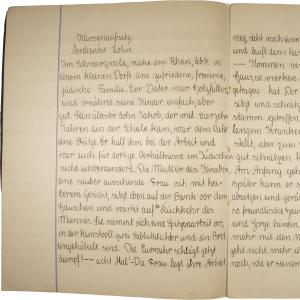 Klassenaufsatz.
Verdienter Lohn
Im Schwarzwald, nahe am Rhein, lebte in
einem kleinen Dorfe eine zufriedene, fromme,
jüdische Familie. Der Vater war Holzfäller,
und ernährte seine Kinder einfach, aber
gut. Sein ältester Sohn Jakob, der mit vierzehn
Jahren aus der Schule kam, war dem Vater
eine Stütze. Er half ihm bei der Arbeit und
war auch für dortige Verhältnisse im Jüdischen
nicht unbewandert. Die Mutter des Knaben,
eine sauber aussehende Frau mit hei-
terem Gesicht, sitzt eben auf der Bank vor dem
Häuschen und wartet auf Rückkehr des
Mannes. Sie nimmt sich eine Spitzenarbeit vor,
in der kunstvoll zwei Sabbatlichter und ein Brot
eingehäkelt sind. Die Turmuhr schlägt jetzt
dumpf! — acht Mal! Die Frau legt ihre Arbeit
weg, steht noch einen
und läuft dann has
— "Kommen wir
Hause mer
getragen hat. Der
sitzt und schnitz
stamm getroffen
langen Kranken
stellt, aber zum
gut schnitzen
Am Anfang gehe
später kann er se
absitzen und gerü
so freundliche Jaun
und Sorge hinein
mehr mit den
geht nicht mehr i
noch, wie er seinem